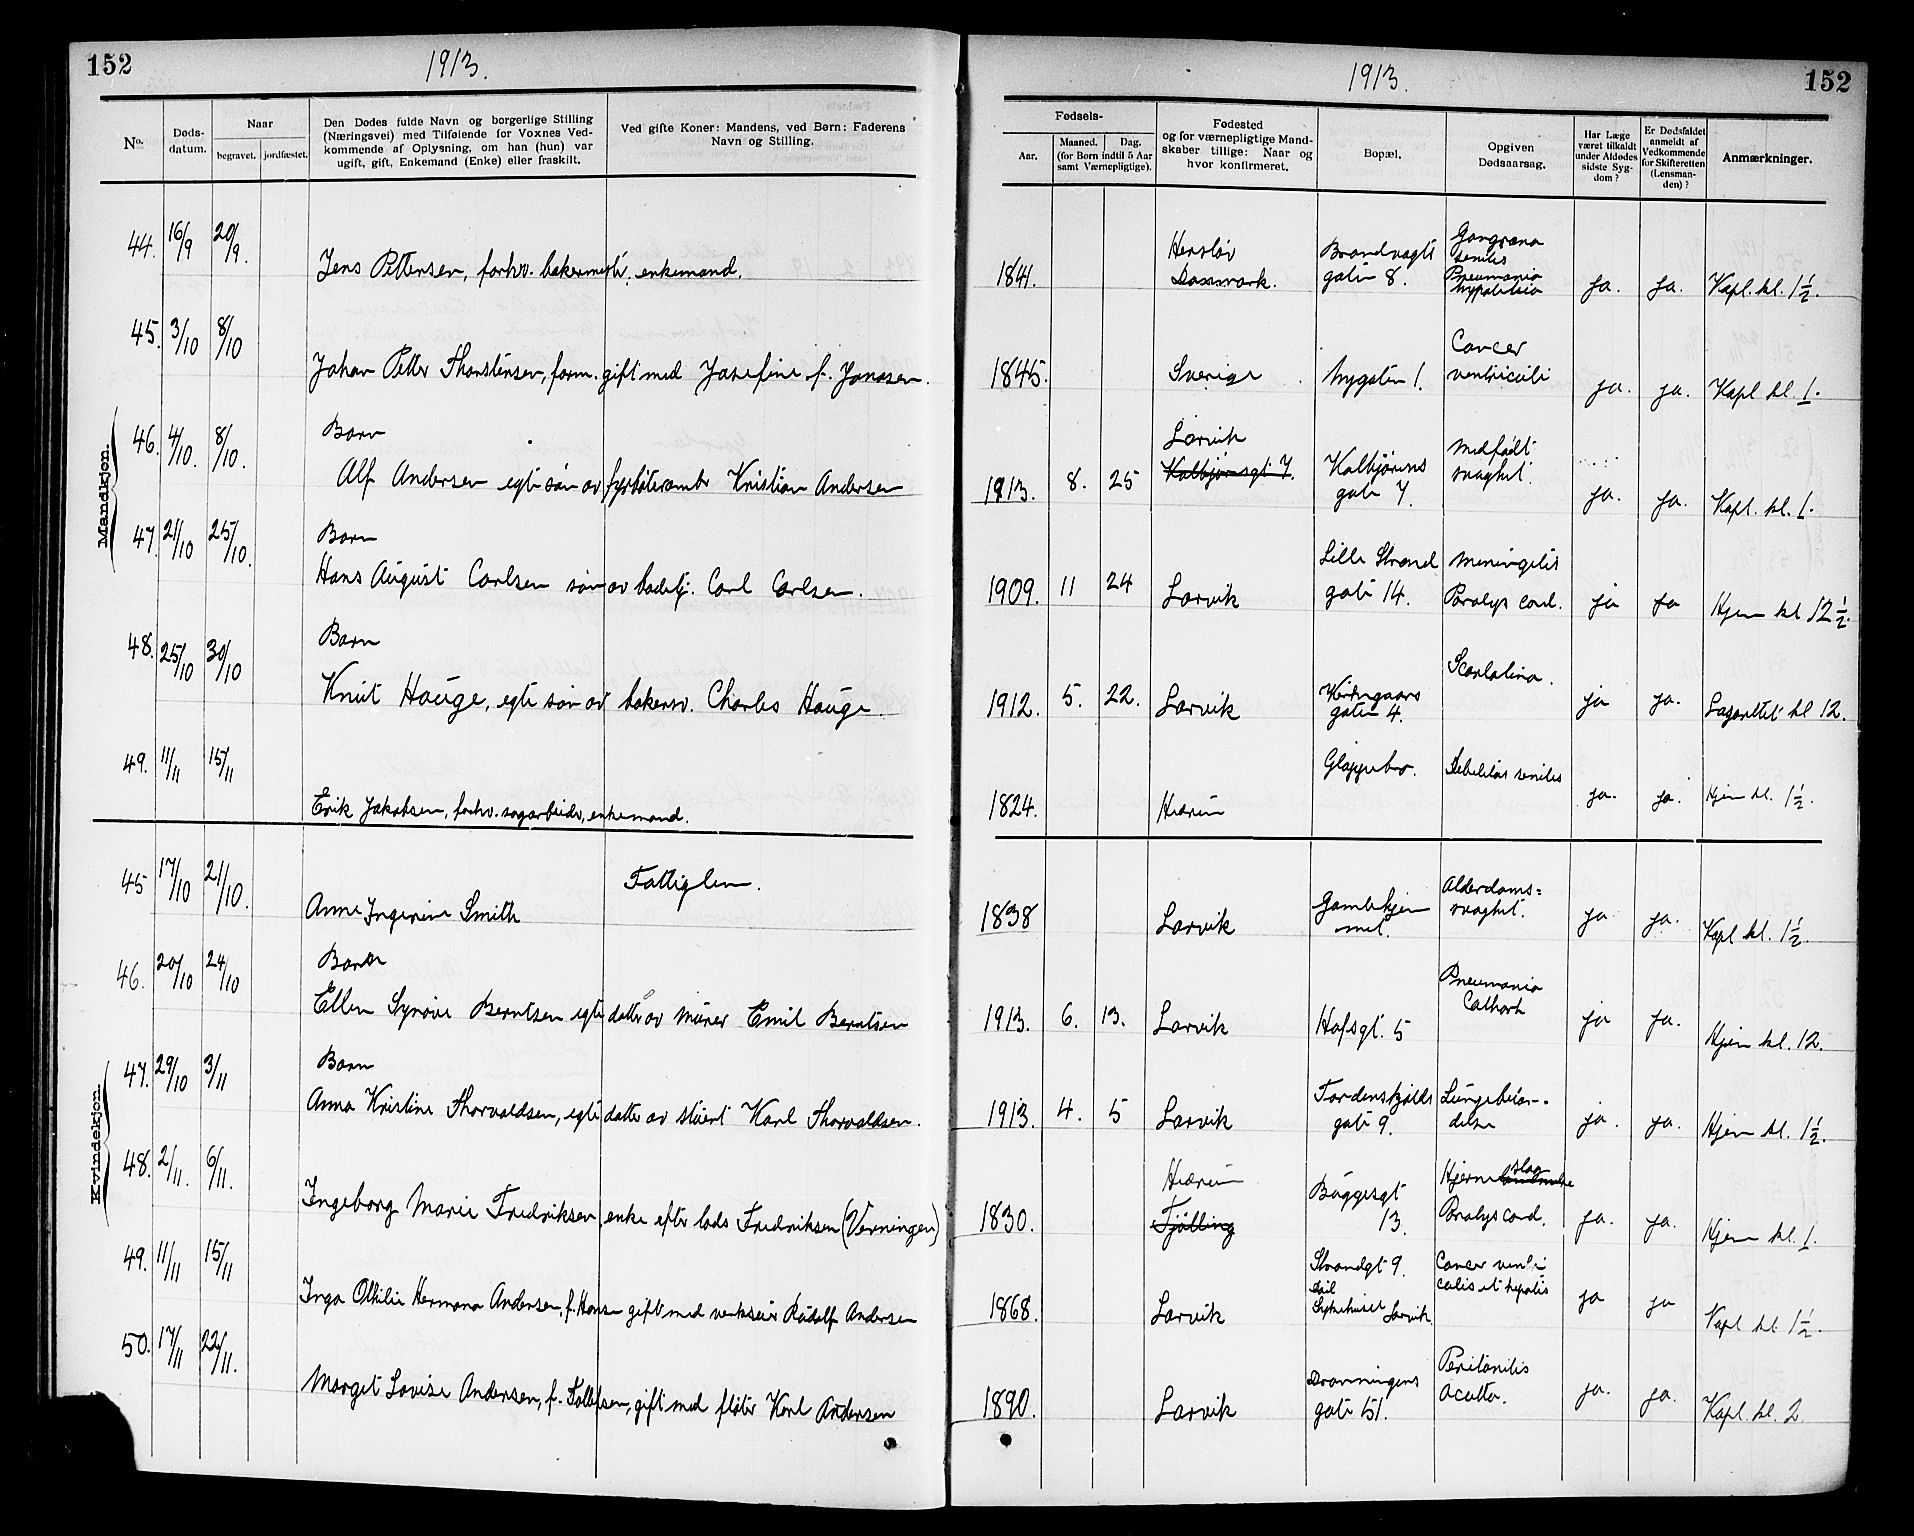 152
1913.
No.
Døds-
datum.
Naar
begravet.
jordfæstet.
Den Dødes fulde Navn og borgerlige Stilling
(Næringsvei) med Tilføiende for Voxnes Ved-
kommende af Oplysning, om han (hun) var
ugift, gift, Enkemand (Enke) eller fraskilt.
Ved gifte Koner: Mandens, ved Børn: Faderens
Navn og Stilling.
Mandkjøn.
44. 16/9 20/9.
Jens Pettersen, forhv. bakermestr. enkemand.
45. 3/10 8/10
Johan Petter Thorstensen, form. gift med Josefine f. Jonasen.
46. 4/10. 8/10.
Barn
Alf Andersen egte søn av fyrbøter Kristian Andersen
47. 21/10 25/10.
Barn
Hans August Carlsen søn av Carl Carlsen.
48. 25/10 30/10
Barn
Knut Hauge, egte søn av bakersv. Charles Hauge.
49. 11/11 15/11
Erik Jakobsen, forhv. sagarbeider, enkemand.
Kvindekjøn.
45 17/10 21/10.
Fattiglem.
Anne Ingerine Smith
46. 20/10 24/10
Barn
Ellen Synøve Berntsen egte datter av murer Emil Berntsen
47. 29/10 3/11
Barn
Anna Kristine Thorvaldsen, egte datter av stuert Karl Thorvaldsen.
48. 2/11. 6/11.
Ingeborg Marie Fredriksen enke efter lods Fredriksen (Verningen)
49. 11/11 15/11
Inga Othilie Hermana Andersen, f. Hansen gift med verkseier Rudolf Andersen
50. 17/11 22/11.
Margit Lovise Andersen, f. Tollefsen, gift med fløter Karl Andersen
1913.
152
Fødsels-
Aar.
Maaned.
Dag.
(for Børn indtil 5 Aar
samt Værnepligtige).
Fødested
og for værnepligtige Mand-
skaber tillige: Naar og
hvor konfirmeret.
Bopæl.
Opgiven
Dødsaarsag.
Har Læge
været tilkaldt
under Afdødes
sidste Syg-
dom?
Er Dødsfaldet
anmeldt af
Vedkommende
for Skifteretten
(Lensman-
den)?
Anmærkninger.
1841.
Hersløv
Danmark.
Brandvagts
gaten 8.
Gangræna
senilis
Pneumonia
ja. ja. Kapl. kl. 1 1/2.
1845.
Sverige
Nygaten 1.
Cancer
ventriculi
ja. ja. Kapl kl 1.
1913. 8. 25
Larvik
Kalbjørnsgt 7.
Kalbjørns
gate 7.
Medfødt
svaghet.
ja. ja. Kapl. kl. 1.
1909. 11 24
Larvik
Lille Strand
gate 14.
Meningitis
Paralys cord.
ja ja Hjem kl 12 1/2.
1912. 5. 22.
Larvik
gaten 4.
Scarlatina.
ja ja. Lazarettet kl 12.
1824.
Hedrum
Gloppebo.
Debilitas senilis
ja. ja. Hjem kl. 1 1/2.
1838
Larvik
Gamlehjem
met.
Alderdoms=
svaghet.
ja ja. Kapl kl. 1 1/2.
1913. 6. 13.
Larvik
Hafsgt. 5
Pneumonia
Cathark
ja ja. Hjem kl. 12.
1913. 4. 5
Larvik
Tordenskjolds
gate 9.
Lungebetæn-
delse
ja. ja. Hjem kl. 1 1/2.
1830.
Hedrum
Tjølling
Buggesgt
13.
Hjerneslag
Paralys cord.
ja. ja. Hjem kl. 1.
1868.
Larvik
Strandgt 9.
Sykehuset Larvik.
Cancer ventri
culis et hepatis
ja ja Kapl kl. 1 1/2.
1890.
Larvik
Dronningens
gate 51.
Peritonitis
acutta.
ja. ja. Kapl. kl. 2